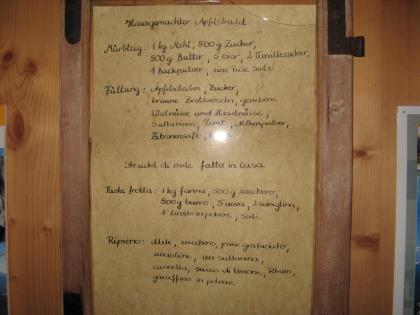 Hausgemachter Apfelstrudel
Mürbteig: 1 kg Mehl, 500 g Zucker,
500 g Butter, 5 Eier, 2 Vanillezucker,
1 Backpulver, eine Prise Salz
Füllung: Apfelscheiben, Zucker,
braune Brotbröseln, geriebene
Walnüsse und Haselnüsse,
Sultaninen, Zimt, Nelkenpulver,
Zitronensaft,
Strudel di mele fatto in casa
Pasta frolla: 1 kg farina, 500 g zucchero,
500g burro, 5 uova, 2 vaniglina,
1 lievito in polvere, sale.
Ripieno: Mele, zucchero, pane gratuciato,
nocioline, uva sultanina,
cannella, succo di limone, Rhum,
garaffino in polvere.